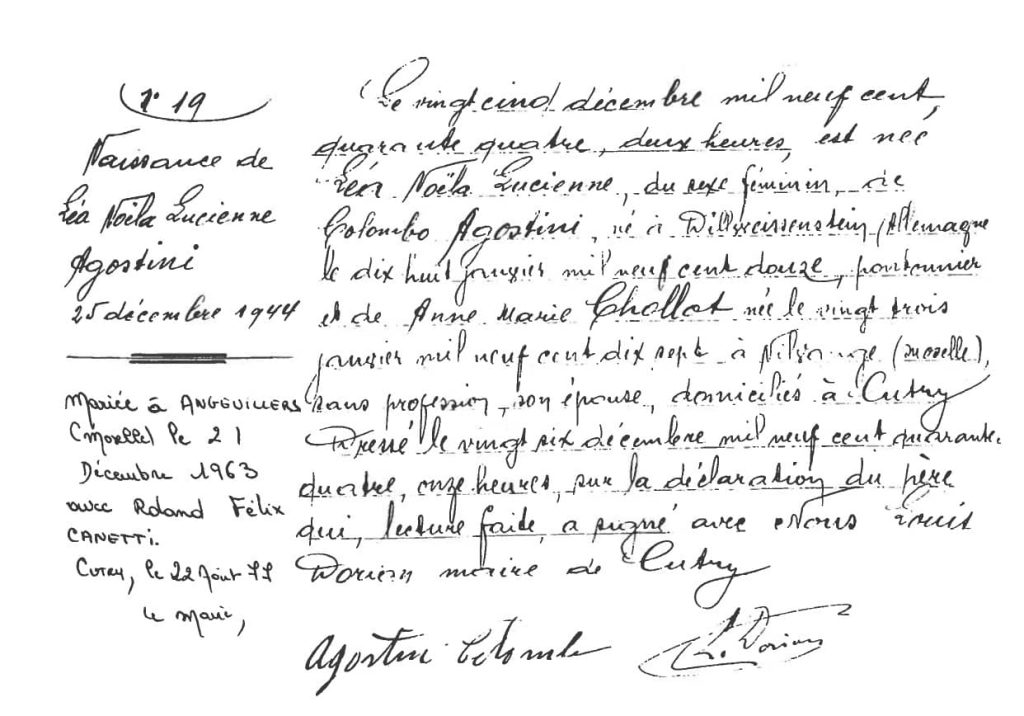 N° 19
Naissance de
Léa Noëla Lucienne
Agostini
25 décembre 1944
Mariée à ANGEVILLERS
(Moselle) le 21
Décembre 1963
avec Roland Félix
CANETTI.
Cutry, le 22 Août 77
Le Maire,
Le vingt cinq décembre mil neuf cent
quarante quatre, deux heures, est née
Léa Noëla Lucienne, du sexe féminin, de
Colombo Agostini, né à Dillweissenstein (Allemagne
le dix huit janvier mil neuf cent douze, pontonnier
et de Anne Marie Chollot née le vingt trois
janvier mil neuf cent dix sept à Nilvange (Moselle),
sans profession, son épouse, domiciliés à Cutry
Dressé le vingt six décembre mil neuf cent quarante-
quatre, onze heures, sur la déclaration du père
qui, lecture faite, a signé avec Nous Louis
Dorion maire de Cutry
Agostini Colombo
L. Dorion